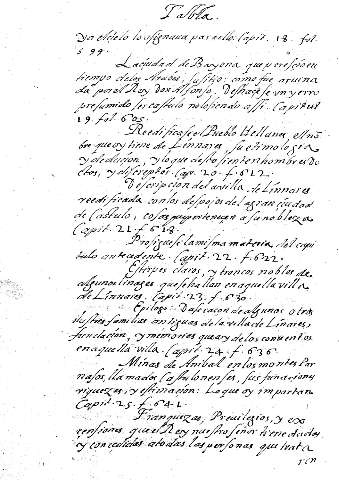 Tabla.
y a el çielo lo asignava para ello. Capit. 18. fol.
599.
La ciudad de Bayona que pereçio en
tiempo de los Arabes, su sitio: como fue arruina
da por el Rey Don Alfonso. Deshaçese un yerro
presumido ser Castulo no lo siendo assi. Capitul
19. fol. 605.
Reedificase el Pueblo Hellanes, el nõ
bre que oy tiene de Linnares, su etimologia
y deduçion, y lo que desto sienten hombres do
ctos, y discretos. Cap. 20. f. 612.
Descripçion de la villa, de Linnares
reedificada con los despojos de la gran ciudad
de Castulo, cosas que pertenecen a su nobleza
Capit. 21. f. 618.
Prosiguese la misma materia, del capi
tulo antecedente. Capit. 22. f. 622.
Estirpes claros, y troncos nobles de
algunos linages que se hallan en aquella villa
de Linnares. Capit. 23. f. 630.
Epilogo: Da se raçon de algunos otras
illustres familias antiguas de la villa de Linares,
fundaçion, y memorias que ay de los conventos
en aquella villa. Capit. 24. f. 636.
Minas de Anibal en los montes Par
nasos, llamados Castulonenses, sus fundaciones
riqueças, y estimaçion: Lo que oy importan
Capit. 25. f. 641.
Franqueças, Previlegios, y exe
nsiones que el Rey nuestro señor tiene dados
y concedidas a todas las personas que trata
ren